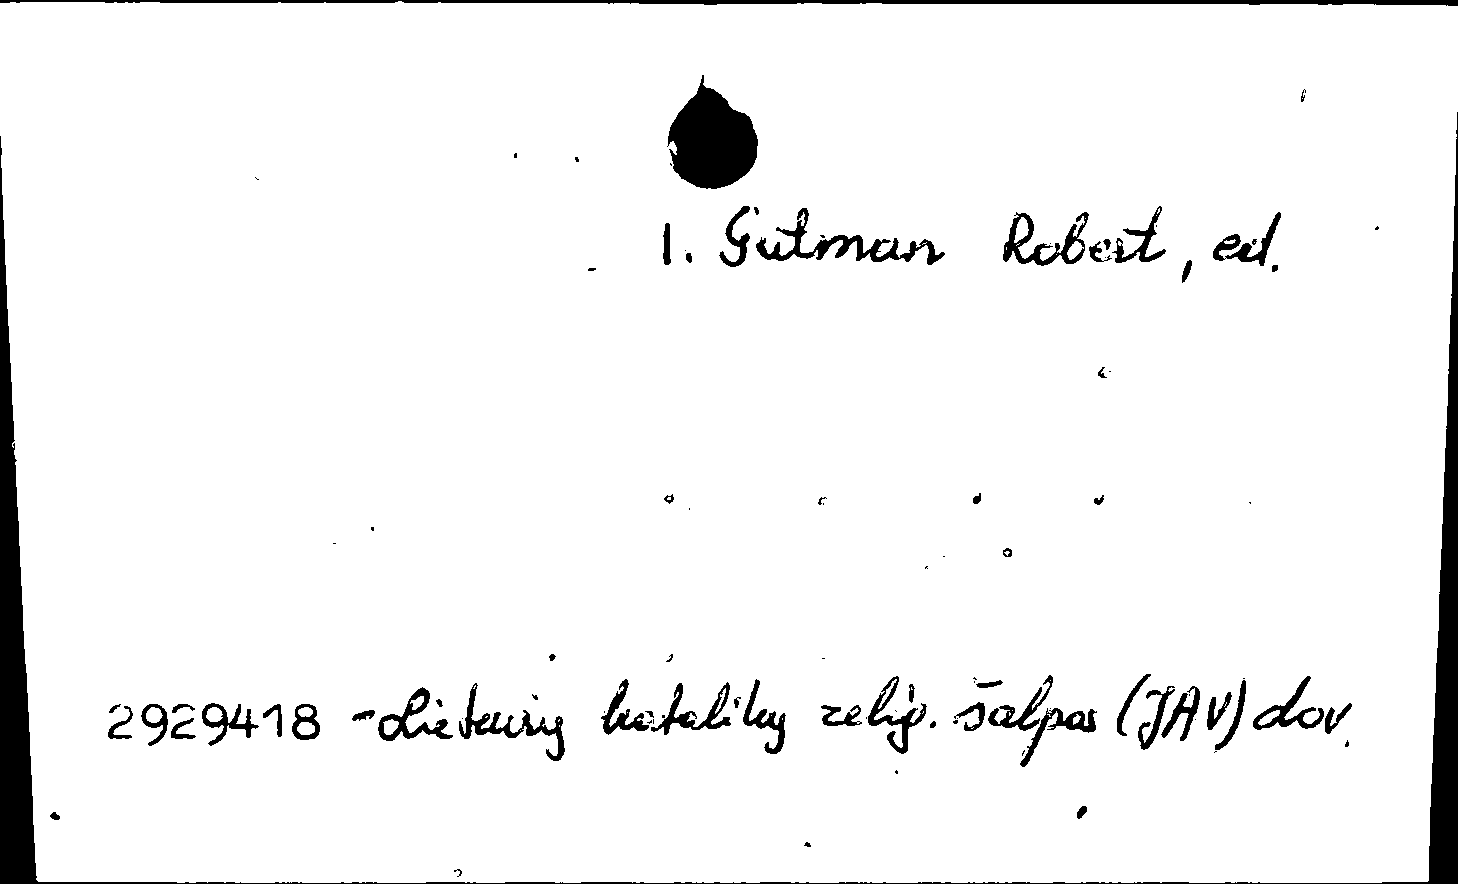 1. Gutman Robert, ed.
2929418 - Lietuvių katalikų relig. šalpos (JAV) dov.